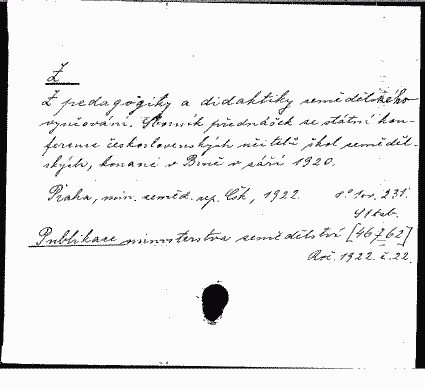 Z
Z pedagogiky a didaktiky zemědělského
vyučování. Sborník přednášek se státní kon-
ference československých učitelů škol zeměděl-
ských, konané v Brně v září 1920.
Praha, min. zeměd. rep. Čsl., 1922. 8° 1sv. 231.
41 tab.
Publikace ministerstva zemědělství [46762]
Roč. 1922. č. 22.